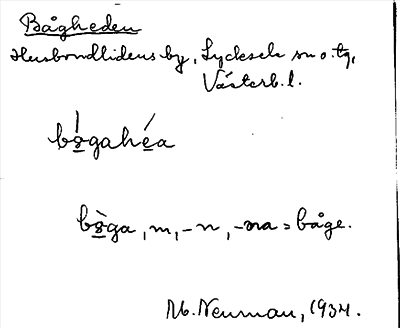 Bågheden
Husbondlidens by, Lycksele sn o. tg,
Västerb. l.
bo̲gahé̲a
bò̲ga, m, -n, -na = båge.
M. Neuman, 1934.